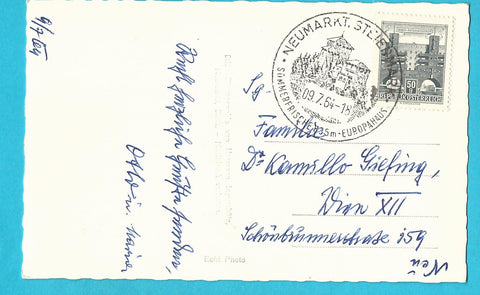 9/7 64
Recht herzliche Grüße senden
Otto u. Maria
NEUMARKT, STEIERM
09.7.64-18
SOMMERFRISCHE m-EUROPAHAUS
50
ÖSTERREICH
Sg.
Familie
Dr Kamillo Giefing,
Wien XII
Schönbrunnerstraße 159
Neu
Echt Photo